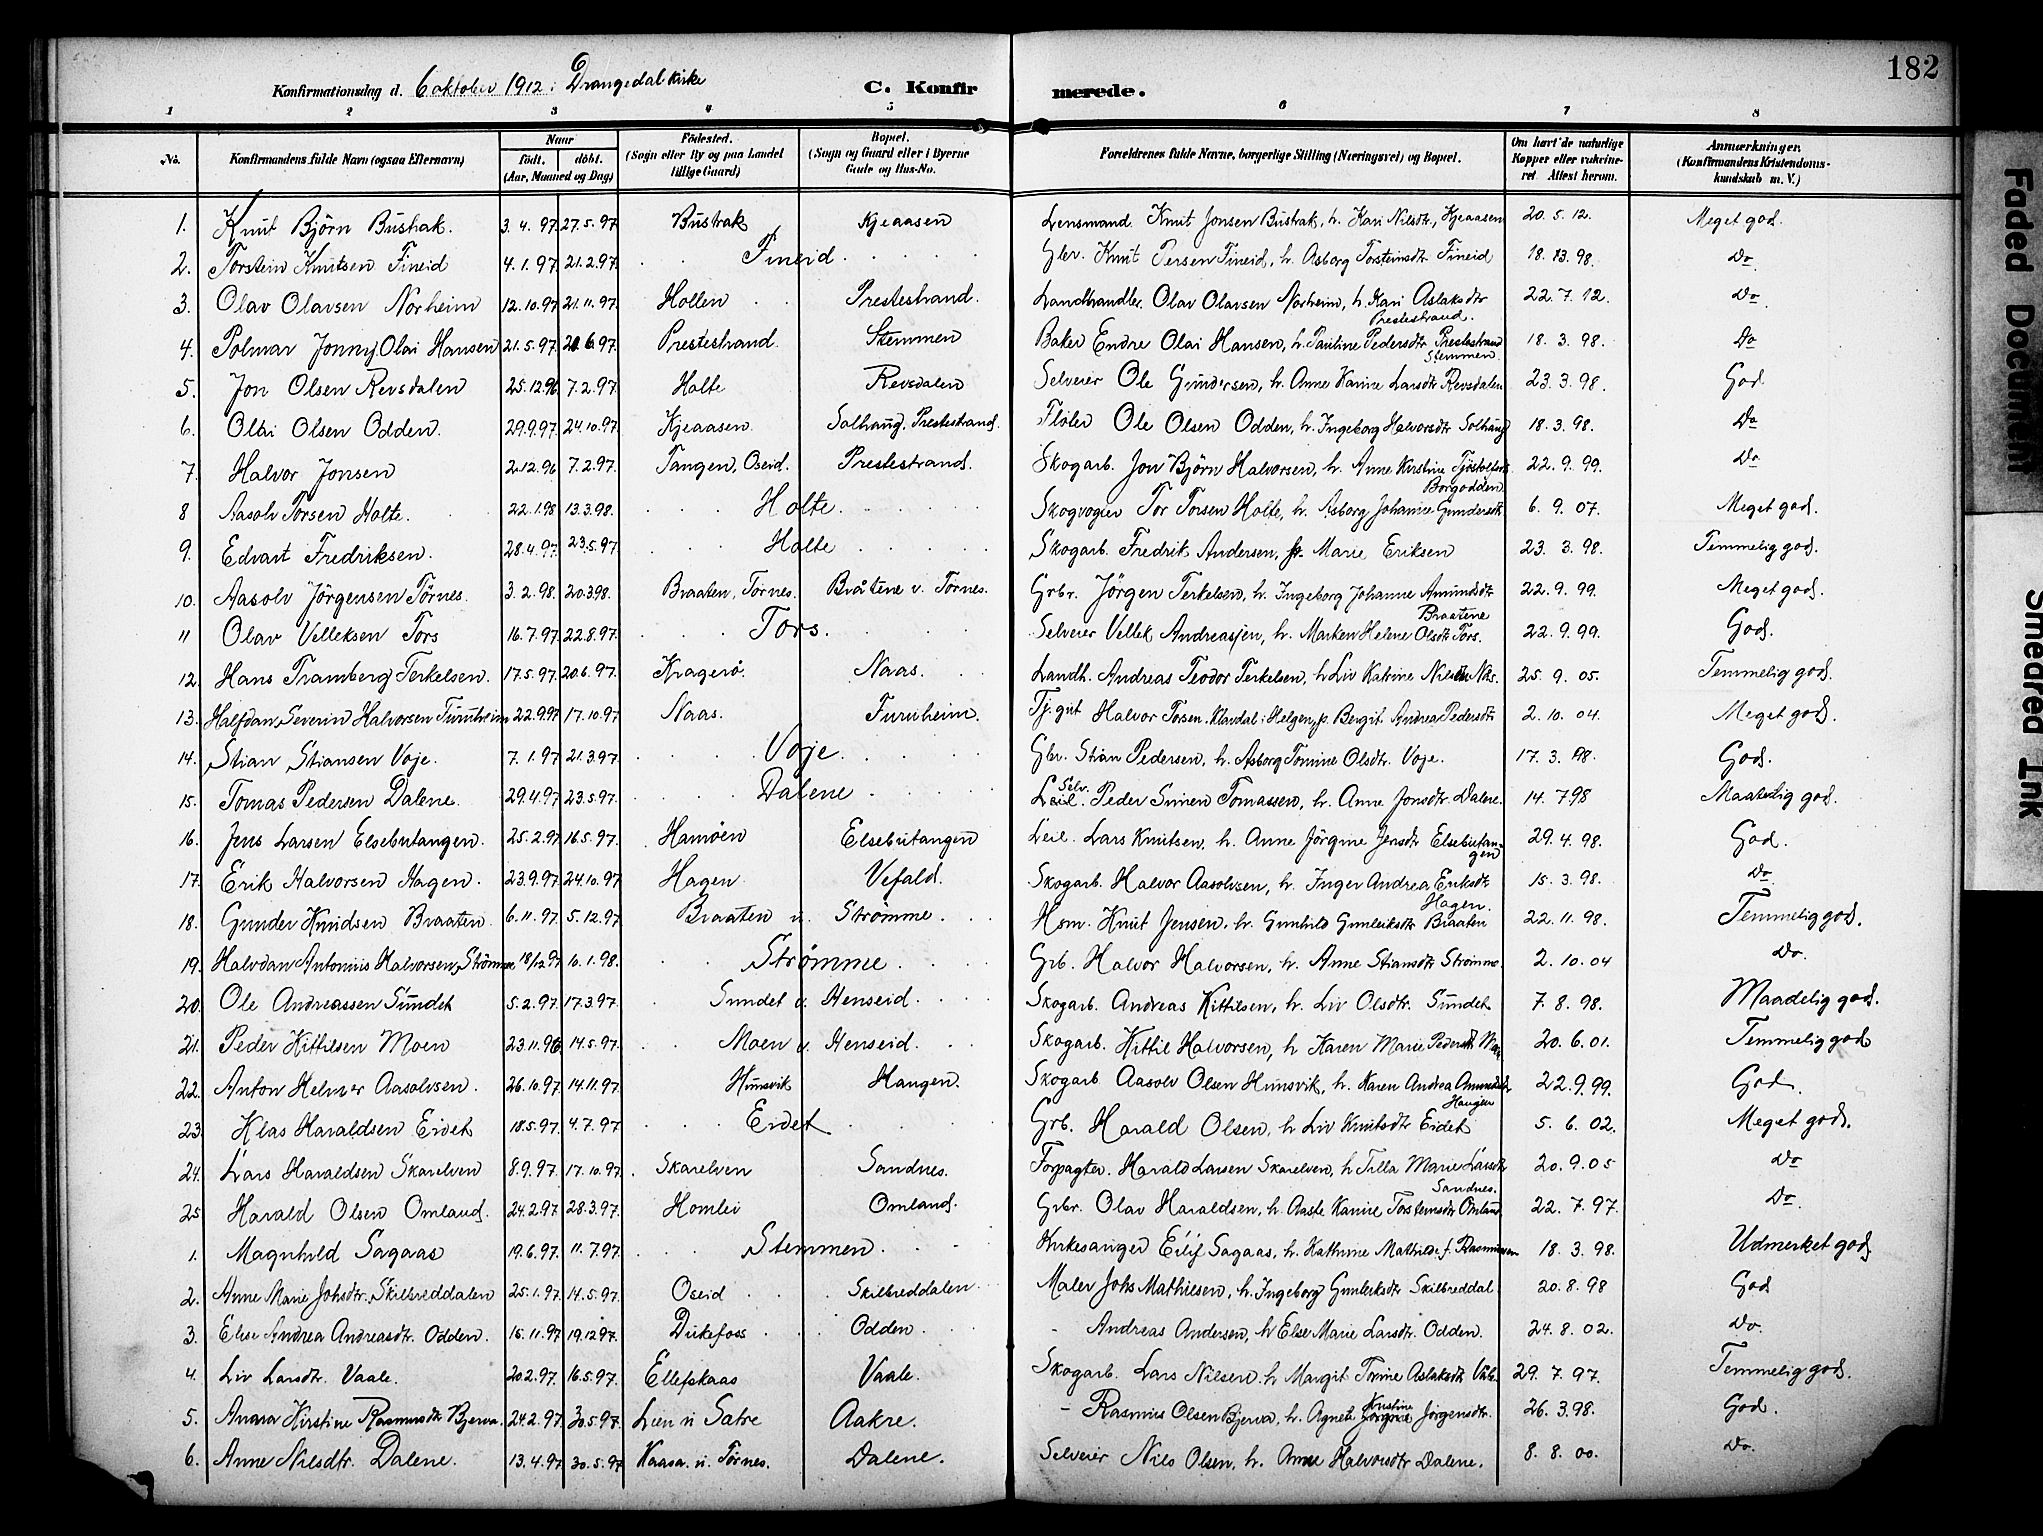 182
Konfirmationsdag d. 6 oktober 1912 i Drangedal kirke C. Konfirmerede.
1 2 3 4 5 6 7 8
No. Konfirmandens fulde Navn (ogsaa Efternavn) Naar født. døbt. (Aar, Maaned og Dag) Fødested. (Sogn eller By og paa Landet tillige Gaard) Bopæl. (Sogn og Gaard eller i Byerne Gade og Hus-No. Forældrenes fulde Navne, borgerlige Stilling (Næringsvei) og Bopæl. Om havt de naturlige Kopper eller vaccineret. Attest herom. Anmærkninger. (Konfirmandens Kristendomskundskab m. V.)
1. Knut Björn Bustrak. 3.4.97 27.5.97 Bustrak Kjeaasen Lensmand Knut Jonsen Bustrak, h. Kari Nilsdtr, Kjeaasen 20.5.12. Meget god.
2. Torstein Knutsen Fineid 4.1.97 21.2.97 Fineid Gbr. Knut Persen Fineid, h. Asborg Torsteinsdtr Fineid 18.13.98. Do
3. Olav Olavsen Norheim 12.10.97 21.11.97 Hollen Prestestrand. Landhandler Olav Olavsen Norheim, h. Kari Aslaksdtr Prestestrand. 22.7.12. Do
4. Polmar Jonny Olai Hansen 21.5.97 6.97 Prestestrand. Stemmen Baker Endre Olai Hansen, h. Pauline Pedersdtr Prestestrand Stemmen 18.3.98. Do
5. Jon Olsen Revsdalen 25.12.96 7.2.97 Holte Revsdalen Selveier Ole Gundersen, h. Anne Karine Larsdtr Revsdalen 23.3.98. God
6. Olai Olsen Odden. 29.9.97 24.10.97 Kjeaasen Solhaug, Prestestrand. Fløter Ole Olsen Odden, h. Ingeborg Halvorsdtr Solhaug 18.3.98. Do
7. Halvor Jonsen 2.12.96 7.2.97. Tangen, Oseid. Prestestrand. Skogarb. Jon Björn Halvorsen, h. Anne Kirstine Borgodden 22.9.99. Do
8 Aasolv Torsen Holte. 22.1.98 13.3.98. Holte. Skogvogter Tor Torsen Holte, h. Asborg Johanne Gundersdtr 6.9.07. Meget god.
9. Edvart Fredriksen. 28.4.97 23.5.97 Holte Skogarb. Fredrik Andersen, Marie Eriksen 23.3.98. Temmelig god.
10. Aasolv Jörgensen Törnes. 3.2.98. 20.3.98. Braaten, Tørnes. Bråtene v. Tørnes. Grbr. Jörgen Terkelsen, h. Ingeborg Johanne Amundsdtr Braatene 22.9.99. Meget god.
11 Olav Velleksen Tors 16.7.97 22.8.97. Tors. Selveier Vellek Andreassen, h. Marken Helene Olsdtr Tors. 22.9.99. God.
12. Hans Tramberg Terkelsen. 17.5.97. 20.6.97. Kragerö. Naas. Landh. Andreas Teodor Terkelsen, h Liv Katrine Nils. 25.9.05. Temmelig god.
13. Halfdan Severin Halvorsen Furuheim 22.9.97 17.10.97 Naas. Furuheim. Tj.gut Halvor Torsen, Klovdal i Helgen, p. Bergit Andrea Pedersdtr 2.10.04. Meget god.
14. Stian Stiansen Voje. 7.1.97 21.3.97 Voje. Gbr. Stian Pedersen, h. Asborg Tomine Olsdtr. Voje. 17.3.98. God.
15. Tomas Pedersen Dalene. 29.4.97 23.5.97. Dalene Selv. Leil. Peder Simen Tomassen, h. Anne Jonsdtr. Dalene. 14.7.98 Maadelig god.
16. Jens Larsen Elsebutangen. 25.2.97 16.5.97. Hamöen Elsebutangen Leil. Lars Knutsen, h. Anne Jörgine Jensdtr Elsebutangen 29.4.98. God.
17. Erik Halvorsen Hagen. 23.9.97 24.10.97 Hagen Vefald. Skogarb. Halvor Aasolvsen, h. Inger Andrea Eriksdtr Hagen. 15.3.98. Do
18. Gunder Knudsen Braaten. 6.11.97. 5.12.97. Braaten u. Strømme. Hsm. Knut Jensen, h. Gunhild Gunleiksdtr Braaten 22.11.98. Temmelig god.
19. Halvdan Antonius Halvorsen Strömme 18/12.97 16.1.98. Strømme Grb. Halvor Halvorsen, h. Anne Stiansdtr Strømme. 2.10.04 Do.
20. Ole Andreassen Sundet 5.2.97. 17.3.97. Sundet u. Henseid. Skogarb. Andreas Kittilsen, h. Liv Olsdtr. Sundet 7.8.98. Maadelig god.
21. Peder Kittilsen Moen 23.11.96 14.5.97. Moen u. Henseid. Skogarb. Kittil Halvorsen, h Karen Marie Pedersdtr 20.6.01. Temmelig god
22. Anton Helmer Aasolvsen. 26.10.97 14.11.97. Hunsvik Haugen. Skogarb Aasolv Olsen Hunsvik, h. Karen Andrea Haugen 22.9.99. God
23. Klas Haraldsen Eidet 18.5.97. 4.7.97 Eidet Grb. Harald Olsen, h Liv Knutsdtr Eidet 5.6.02. Meget god.
24. Lars Haraldsen Skarelven 8.9.97. 17.10.97. Skarelven Sandnes. Forpagter. Harald Larsen Skarelven, h Tilla Marie Larsdtr Sandnes. 20.9.05 Do
25 Harald Olsen Omland. 24.2.97. 28.3.97. Homlei Omland. Grbr. Olav Haraldsen, h. Aaste Karine Torsteinsdtr Omland 22.7.97. Do.
1. Magnhild Sagaas 19.6.97. 11.7.97. Stemmen. Kirkesanger Eilif Sagaas, h. Kathrine Mathilde f. Rasmussen 18.3.98. Udmerket god
2. Anne Marie Johsdtr. Skilbreddalen 25.1.97 14.5.97. Oseid Skilbreddalen Maler Johs Mathisen, h. Ingeborg Gunleiksdtr Skilbreddal. 20.8.98 God
3. Elise Andrea Andreasdtr. Odden. 15.11.97 19.12.97. Dirkefoss Odden. - Andreas Andersen, h Else Marie Larsdtr. Odden. 24.8.02. Do.
4. Liv Larsdtr. Vaale. 20.2.97. 16.5.97. Ellefskaas Vaale. Skogarb. Lars Nilsen, h. Margit Torine Aslaksdtr 29.7.97. Temmelig god.
5. Anna Kirstine Rasmusdtr Bjerva. 24.2.97 30.5.97. Lien u Satre Aakre. - Rasmus Olsen Bjerva, h. Agnete Kristine Jörgensdtr. 26.3.98. God.
6. Anne Nilsdtr. Dalene. 13.4.97 30.5.97 Kaasa u. Törnes. Dalene. Selveier Nils Olsen, h. Anne Halvorsdtr Dalene. 8.8.00. Do.
Faded Document
Smeared Ink